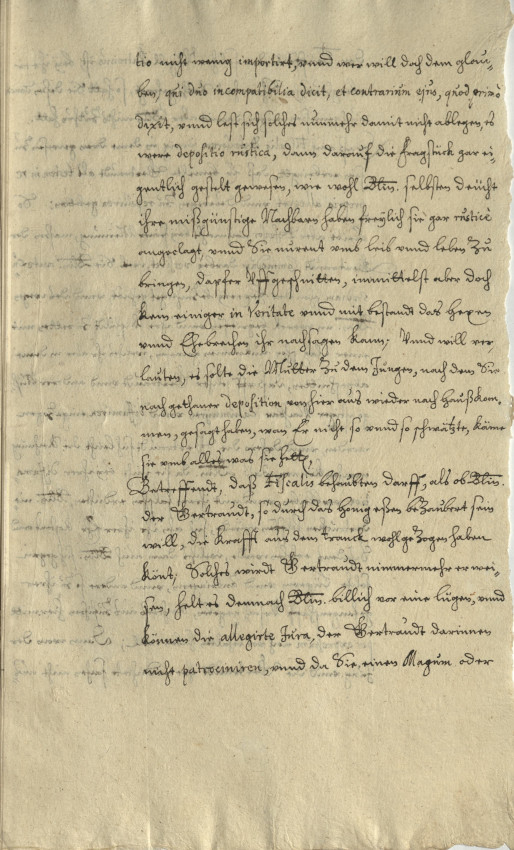 tio nicht wenig importirt, vnnd wer will doch dem glau-
ben, qui duo incompatibilia dicit, et contrarium ejus, quod primò
dixit, vnnd lest sich solches nunmehr damit nicht ablegen, es
were depositio rustica, dann darauf die Fragstück gar ei-
gentlich gestelt gewesen, wie wohl Bltin. selbsten deücht
ihre mißgünstige Nachbaren haben freylich sie gar rusticè
angeclagt, vnnd Sie nurent vmb leib vnnd leben Zu
bringen, dapfer Uffgeschnitten, immittelst aber doch
kein einiger in Veritate vnnd mit bestandt das hexen
vnnd Ehebrechen ihr nachsagen kann. Vnnd will ver
lauten, es solte die Mutter Zu dem Jungen, nach dem Sie
nach gethaner deposition von hier aus wieder nach hauß kom,
men, gesagt haben, wan Er nicht so vnnd so schwätzte, käme
sie vmb alles was sie hette
Betreffendt, daß Fiscalis behaubten darff, als ob Bltin.
der Gertraudt, so durch das honig eßen beZaubert sein
will, die Krafft aus dem tranck wohl geZogen haben
könt; Solches wirdt Gertraudt nimmermehr erwei-
sen, helt es demnach Bltin. billich vor eine lügen, vnnd
können die allegirte Jura, der Gertraudt darinnen
nicht patrociniren, vnnd da Sie, einen Magum oder